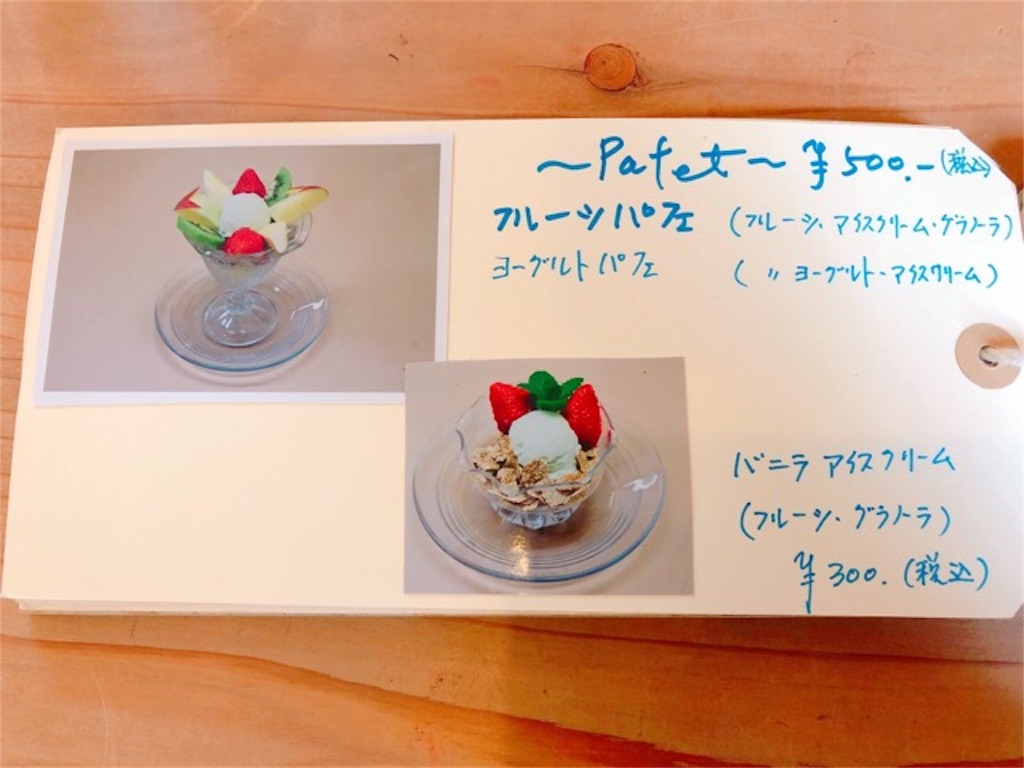 ~Pafet~ ¥500.-(税込)
フルーツパフェ (フルーツ・アイスクリーム・グラノーラ)
ヨーグルトパフェ ( 〃 ヨーグルト・アイスクリーム)
バニラアイスクリーム
(フルーツ・グラノーラ)
¥300. (税込)